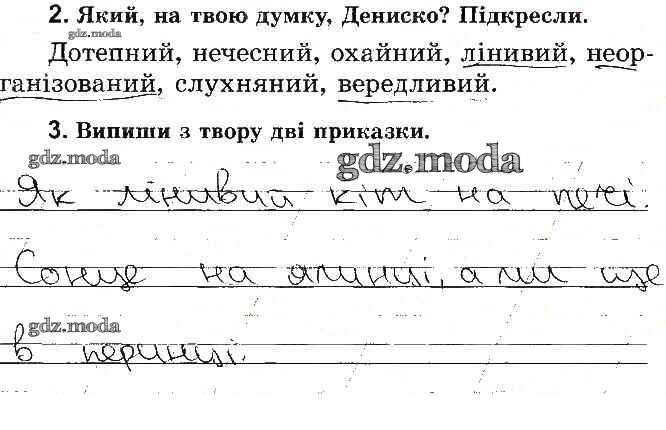 2. Який, на твою думку, Дениско? Підкресли.
gdz.moda
Дотепний, нечесний, охайний, лінивий, неор-
ганізований, слухняний, вередливий.
3. Випиши з твору дві приказки.
gdz.moda
gdz.moda
Як лінивий кіт на печі.
Сонце на ялинці, а ми ще
gdz.moda
в перинці.